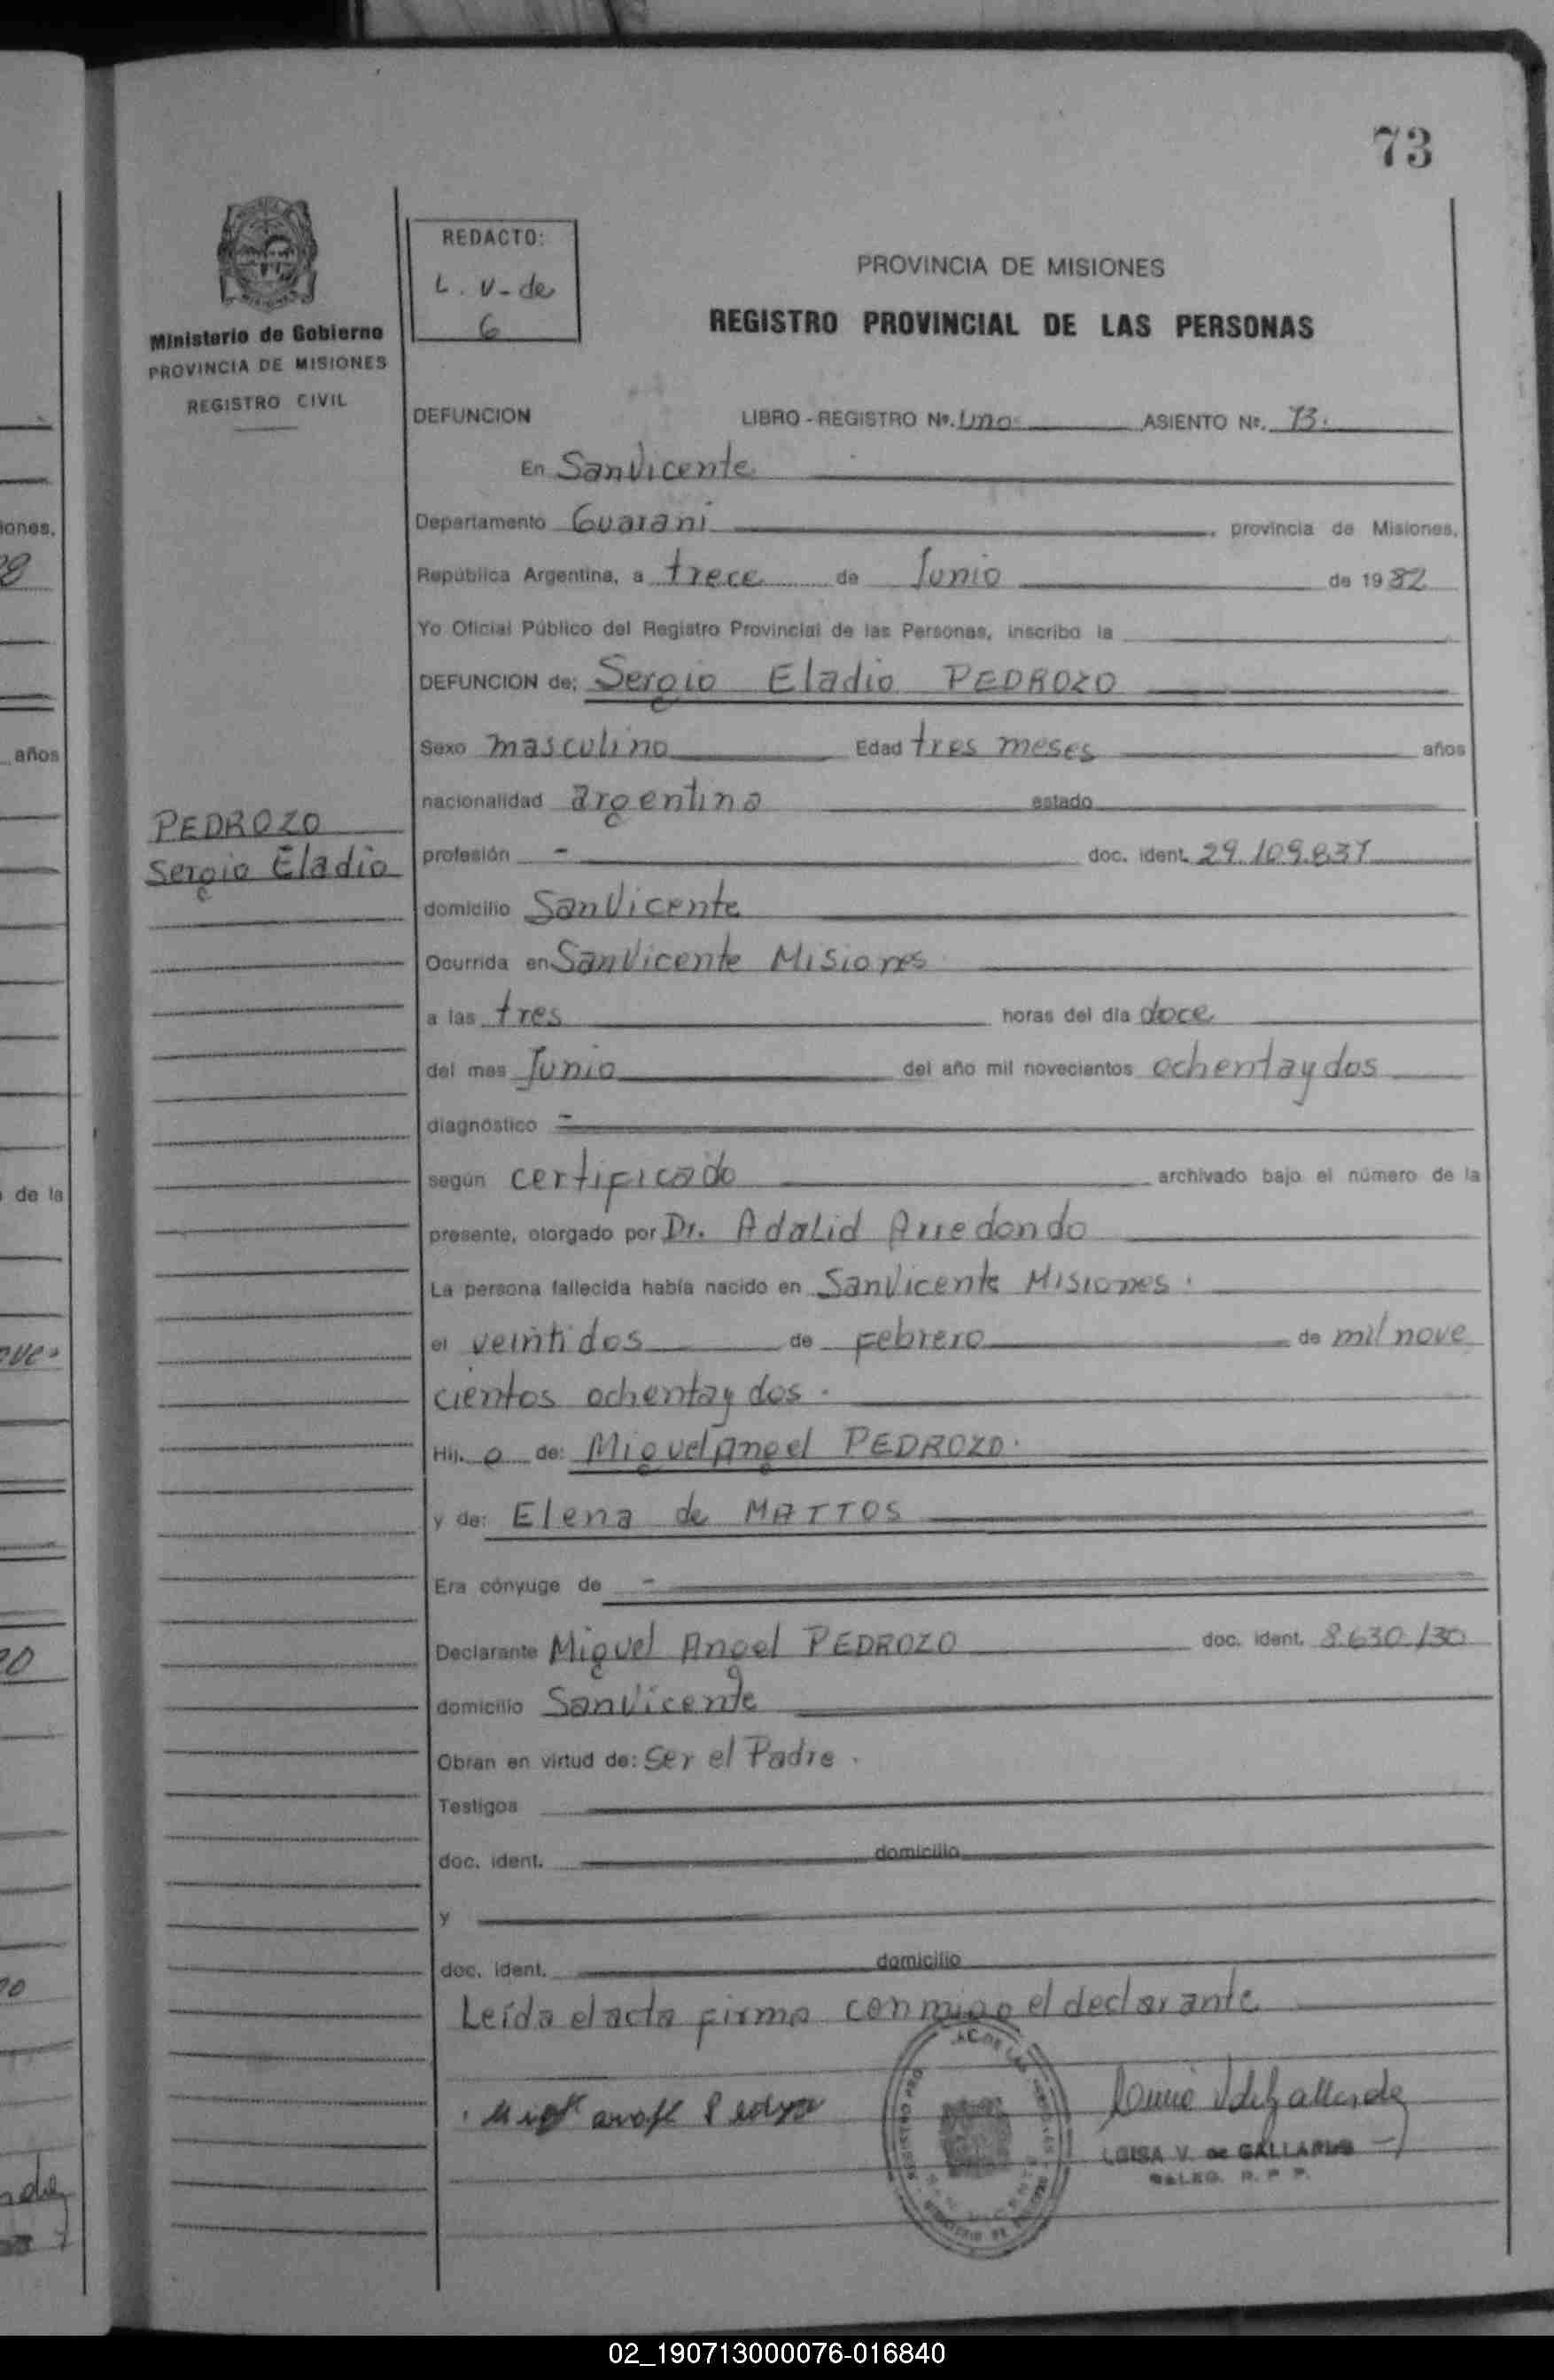 73
REDACTO:
L. V. de
G
Ministerio de Gobierno
PROVINCIA DE MISIONES
REGISTRO CIVIL
PROVINCIA DE MISIONES
REGISTRO PROVINCIAL DE LAS PERSONAS
DEFUNCION LIBRO - REGISTRO Nº. Uno ASIENTO Nº. 73.
En San Vicente
Departamento Guarani, provincia de Misiones,
República Argentina, a trece de Junio de 1982
Yo Oficial Público del Registro Provincial de las Personas, inscribo la
DEFUNCION de: Sergio Eladio PEDROZO
Sexo masculino Edad tres meses años
nacionalidad argentina estado
PEDROZO
Sergio Eladio
profesión - doc. ident. 29.109.837
domicilio San Vicente
Ocurrida en San Vicente Misiones
a las tres horas del día doce
del mes Junio del año mil novecientos ochenta y dos
diagnóstico -
según certificado archivado bajo el número de la
presente, otorgado por Dr. Adalid Arredondo
La persona fallecida había nacido en San Vicente Misiones.
el veintidos de Febrero de mil nove
cientos ochenta y dos.
Hij. o de: Miguel Angel PEDROZO.
y de: Elena de MATTOS
Era cónyuge de -
Declarante Miguel Angel PEDROZO doc. ident. 8.630.130
domicilio San Vicente
Obran en virtud de: Ser el Padre.
Testigos
doc. ident. domicilio
y
doc. ident. domicilio
Leída el acta firma conmigo el declarante
LUISA V. de GALLARDO
DELEG. R. P. P.
iones,
años
de la
02_190713000076-016840